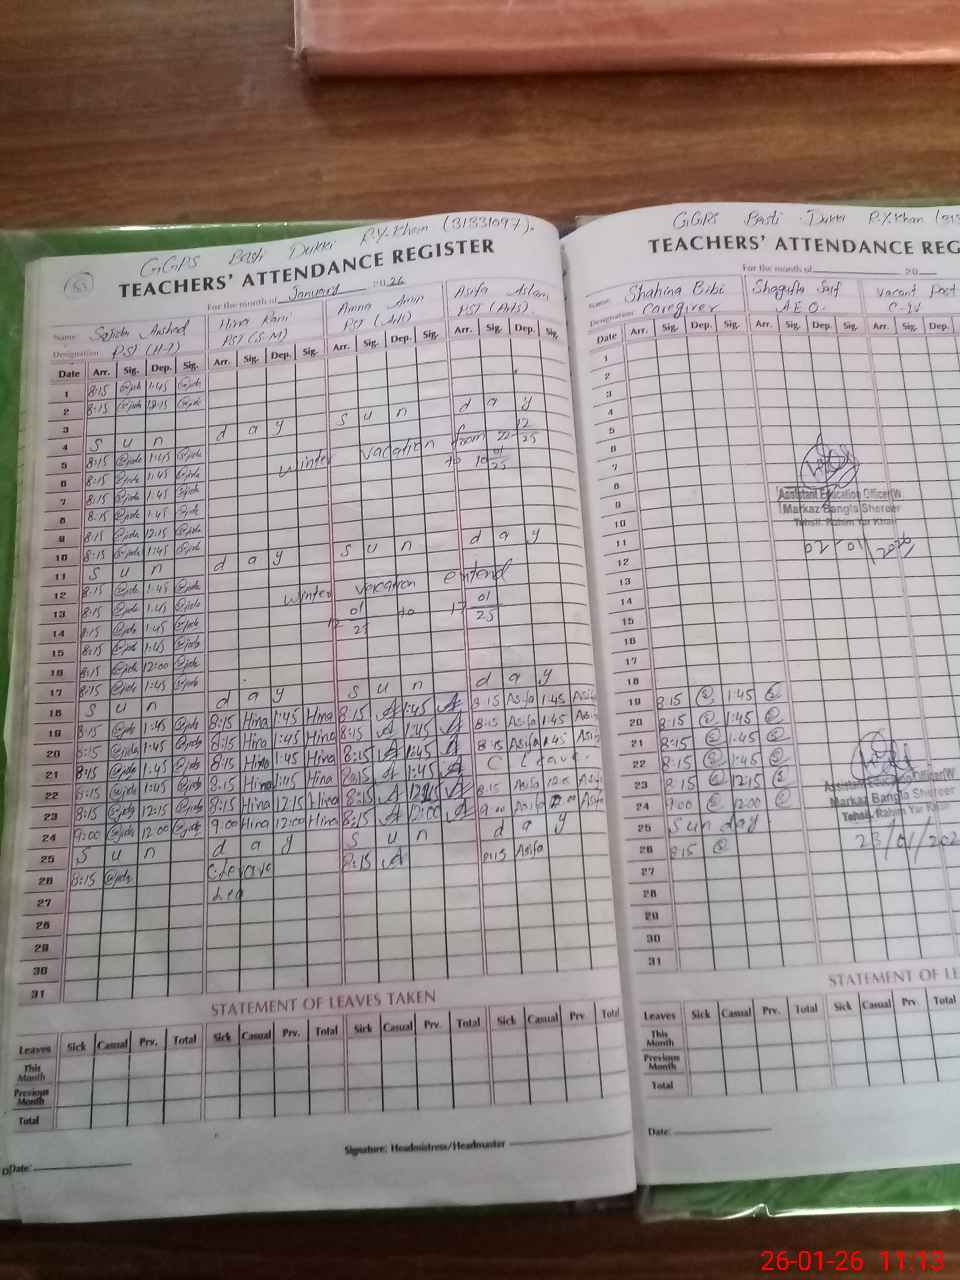 GGPS Basti Dukki R.Y.Khan (31331097).
(55)
TEACHERS' ATTENDANCE REGISTER
For the month of January 2026
Name Sajida Arshad Hina Rani Amna Amin Asifa Aslam
Designation PST (H-T) PST (S-M)
Date Arr. Sig. Dep. Sig. Arr. Sig. Dep. Sig. Arr. Sig. Dep. Sig. Arr. Sig. Dep. Sig.
1 8:15 1:45
2 8:15 12:15
3
4 S u n d a y S u n d a y
5 8:15 1:45 winter vacation from 22 12/25
6 8:15 1:45 to 10 01/25
7 8:15 1:45
8 8:15 1:45
9 8:15 12:15
10 8:15 1:45
11 S u n d a y S u n d a y
12 8:15 1:45
13 8:15 1:45 winter vacation extend
14 8:15 1:45 12 01/25 to 17 01/25
15 8:15 1:45
16 8:15 12:00
17 8:15 1:45
18 S u n d a y S u n d a y
19 8:15 1:45 8:15 Hina 1:45 Hina 8:15 1:45 8:15 Asifa 1:45 Asifa
20 8:15 1:45 8:15 Hina 1:45 Hina 8:15 1:45 8:15 Asifa 1:45 Asifa
21 8:15 1:45 8:15 Hina 1:45 Hina 8:15 1:45 8:15 Asifa 1:45 Asifa
22 8:15 1:45 8:15 Hina 1:45 Hina 8:15 1:45 C Leave.
23 8:15 12:15 8:15 Hina 12:15 Hina 8:15 12:15 8:15 Asifa 12:15 Asifa
24 9:00 12:00 9:00 Hina 12:00 Hina 8:15 12:00 9:00 Asifa 12:00 Asifa
25 S u n d a y S u n d a y
26 8:15 8:15 8:15 Asifa
27
28
29
30
31
STATEMENT OF LEAVES TAKEN
Leaves Sick Casual Prv. Total Sick Casual Prv. Total Sick Casual Prv. Total Sick Casual Prv. Total
This Month
Previous Month
Total
Signature: Headmistress/Headmaster
Date:
GGPS Basti Dukki R.Y.Khan (313
TEACHERS' ATTENDANCE REG
For the month of 20
Name: Shahina Bibi Shagufta Saif vacant post
Designation: Caregiver A.E.O.
Date Arr. Sig. Dep. Sig. Arr. Sig. Dep. Sig. Arr. Sig. Dep.
1
2
3
4
5
6
7
8
9
10
11
12
13
14
15
16
17
18
19 8:15 1:45
20 8:15 1:45
21 8:15 1:45
22 8:15 1:45
23 8:15 12:15
24 9:00 12:00
25 Sun day
26 8:15
27
28
29
30
31
Assistant Education Officer(W
Markaz Bangla Shereer
Tehsil. Rahim Yar Khan
02-01/2026
Assistant Education Officer(W
Markaz Bangla Shereer
Tehsil. Rahim Yar Khan
23/01/202
STATEMENT OF LE
Leaves Sick Casual Prv. Total Sick Casual Prv. Total
This Month
Previous Month
Total
Date:
26-01-26 11:13